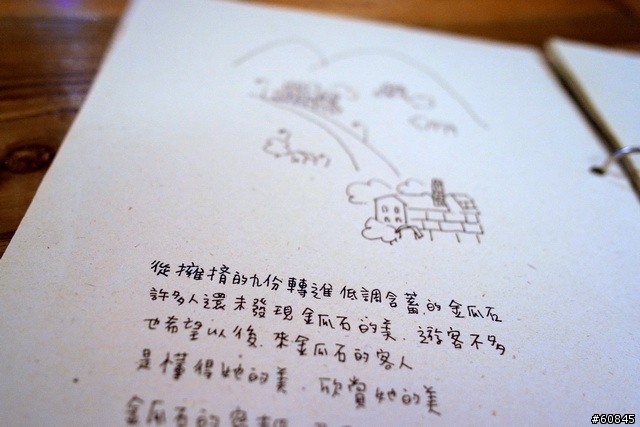 從擁擠的九份轉進低調含蓄的金瓜石
許多人還未發現金瓜石的美．遊客不多
也希望以後．來金瓜石的客人
是懂得她的美．欣賞她的美
金瓜石的
#60845